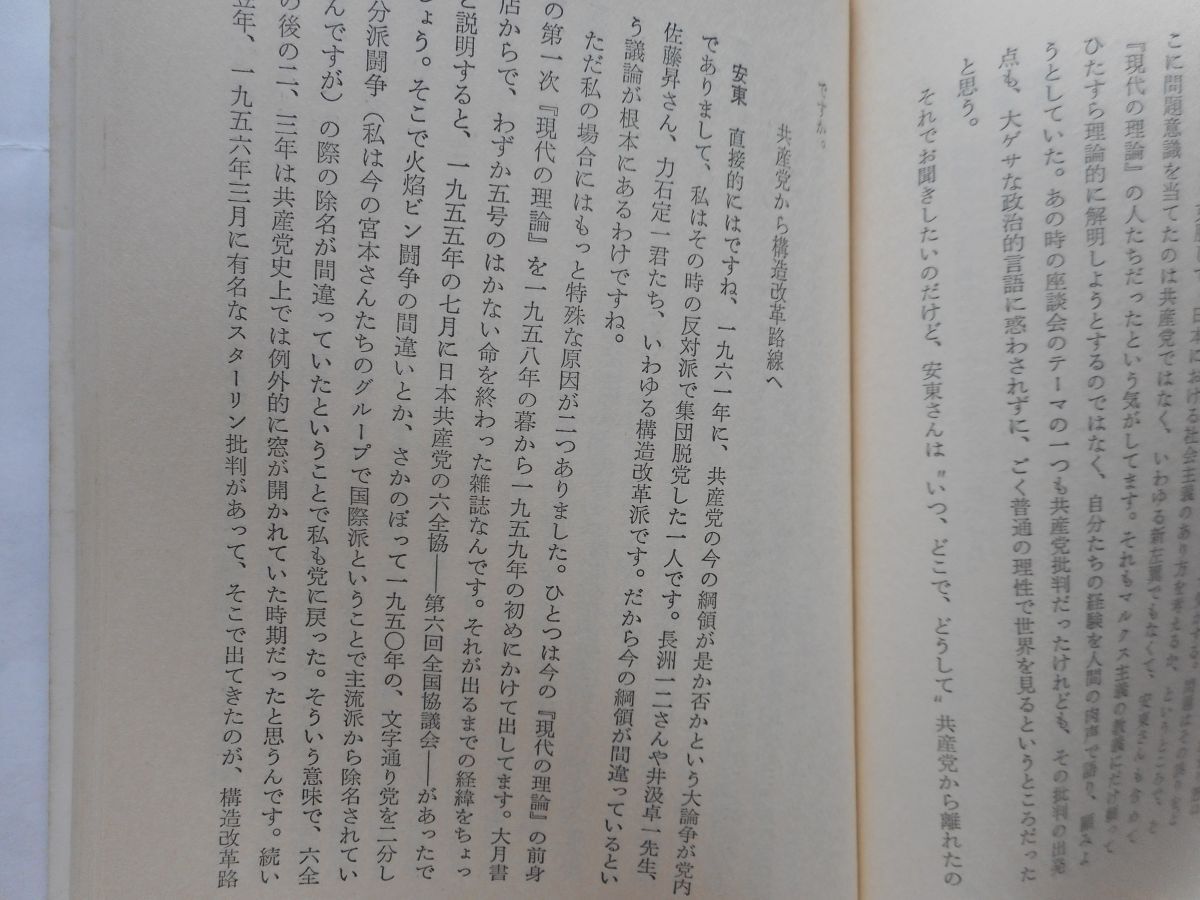 こに問題意識を当てたのは共産党ではなく、いわゆる新左翼でもなくて、安東さんも含めて
『現代の理論』の人たちだったという気がしてます。それもマルクス主義の教義にだけ頼って
ひたすら理論的に解明しようとするのではなく、自分たちの経験を人間の肉声で語り、顧みよ
うとしていた。あの時の座談会のテーマの一つも共産党批判だったけれども、その批判の出発
点も、大ゲサな政治的言語に惑わされずに、ごく普通の理性で世界を見るというところだった
と思う。
それでお聞きしたいのだけど、安東さんは〝いつ、どこで、どうして〟共産党から離れたの
ですか。
共産党から構造改革路線へ
安東　直接的にはですね、一九六一年に、共産党の今の綱領が是か否かという大論争が党内
でありまして、私はその時の反対派で集団脱党した一人です。長洲一二さんや井汲卓一先生、
佐藤昇さん、力石定一君たち、いわゆる構造改革派です。だから今の綱領が間違っているとい
う議論が根本にあるわけですね。
ただ私の場合にはもっと特殊な原因が二つありました。ひとつは今の『現代の理論』の前身
の第一次『現代の理論』を一九五八年の暮から一九五九年の初めにかけて出してます。大月書
店からで、わずか五号のはかない命を終わった雑誌なんです。それが出るまでの経緯をちょっ
と説明すると、一九五五年の七月に日本共産党の六全協――第六回全国協議会――があったで
しょう。そこで火焰ビン闘争の間違いとか、さかのぼって一九五〇年の、文字通り党を二分し
分派闘争（私は今の宮本さんたちのグループで国際派ということで主流派から除名されてい
んですが）の際の除名が間違っていたということで私も党に戻った。そういう意味で、六全
の後の二、三年は共産党史上では例外的に窓が開かれていた時期だったと思うんです。続い
翌年、一九五六年三月に有名なスターリン批判があって、そこで出てきたのが、構造改革路